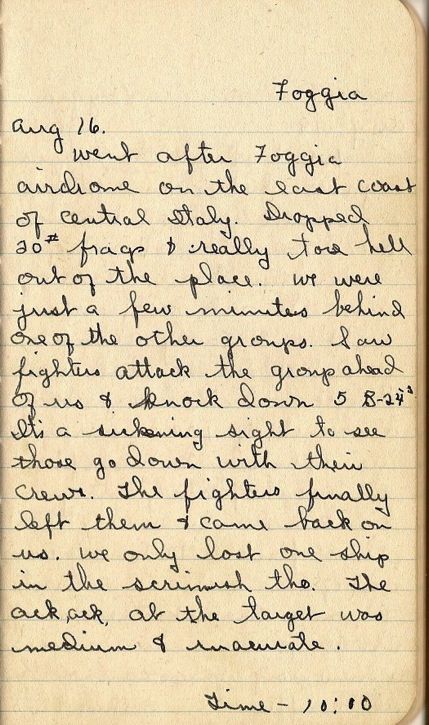 Foggia
Aug 16.
Went after Foggia
airdrome on the east coast
of central Italy. Dropped
20# frags & really tore hell
out of the place. We were
just a few minutes behind
one of the other groups. Saw
fighters attack the group ahead
of us & knock down 5 B-24's
Its a sickening sight to see
those go down with their
crews. The fighters finally
left them & came back on
us. We only lost one ship
in the scrimish tho. The
ack, ack, at the target was
medium & inaccurate.
Time - 10:10